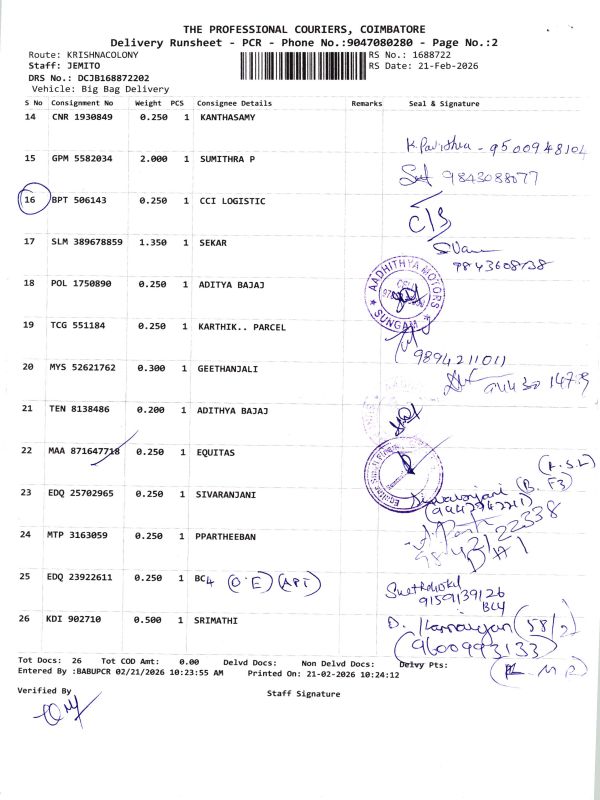 THE PROFESSIONAL COURIERS, COIMBATORE
Delivery Runsheet - PCR - Phone No.:9047080280 - Page No.:2
Route: KRISHNACOLONY RS No.: 1688722
Staff: JEMITO RS Date: 21-Feb-2026
DRS No.: DCJB168872202
Vehicle: Big Bag Delivery
S No Consignment No Weight PCS Consignee Details Remarks Seal & Signature
14 CNR 1930849 0.250 1 KANTHASAMY
K. Pavithra - 9500948104
15 GPM 5582034 2.000 1 SUMITHRA P
9843088077
16 BPT 506143 0.250 1 CCI LOGISTIC
17 SLM 389678859 1.350 1 SEKAR
18 POL 1750890 0.250 1 ADITYA BAJAJ
AADHITHYA MOTORS
SUNGAM
19 TCG 551184 0.250 1 KARTHIK.. PARCEL
9894211011
20 MYS 52621762 0.300 1 GEETHANJALI
21 TEN 8138486 0.200 1 ADITHYA BAJAJ
22 MAA 871647718 0.250 1 EQUITAS
23 EDQ 25702965 0.250 1 SIVARANJANI
Sivaranjani (B. F3)
24 MTP 3163059 0.250 1 PPARTHEEBAN
25 EDQ 23922611 0.250 1 BC4 (O.E) (APT)
9159139126
BC4
26 KDI 902710 0.500 1 SRIMATHI
(58/2)
(9600993133)
Tot Docs: 26 Tot COD Amt: 0.00 Delvd Docs: Non Delvd Docs: Delvy Pts:
Entered By :BABUPCR 02/21/2026 10:23:55 AM Printed On: 21-02-2026 10:24:12
Verified By
Staff Signature